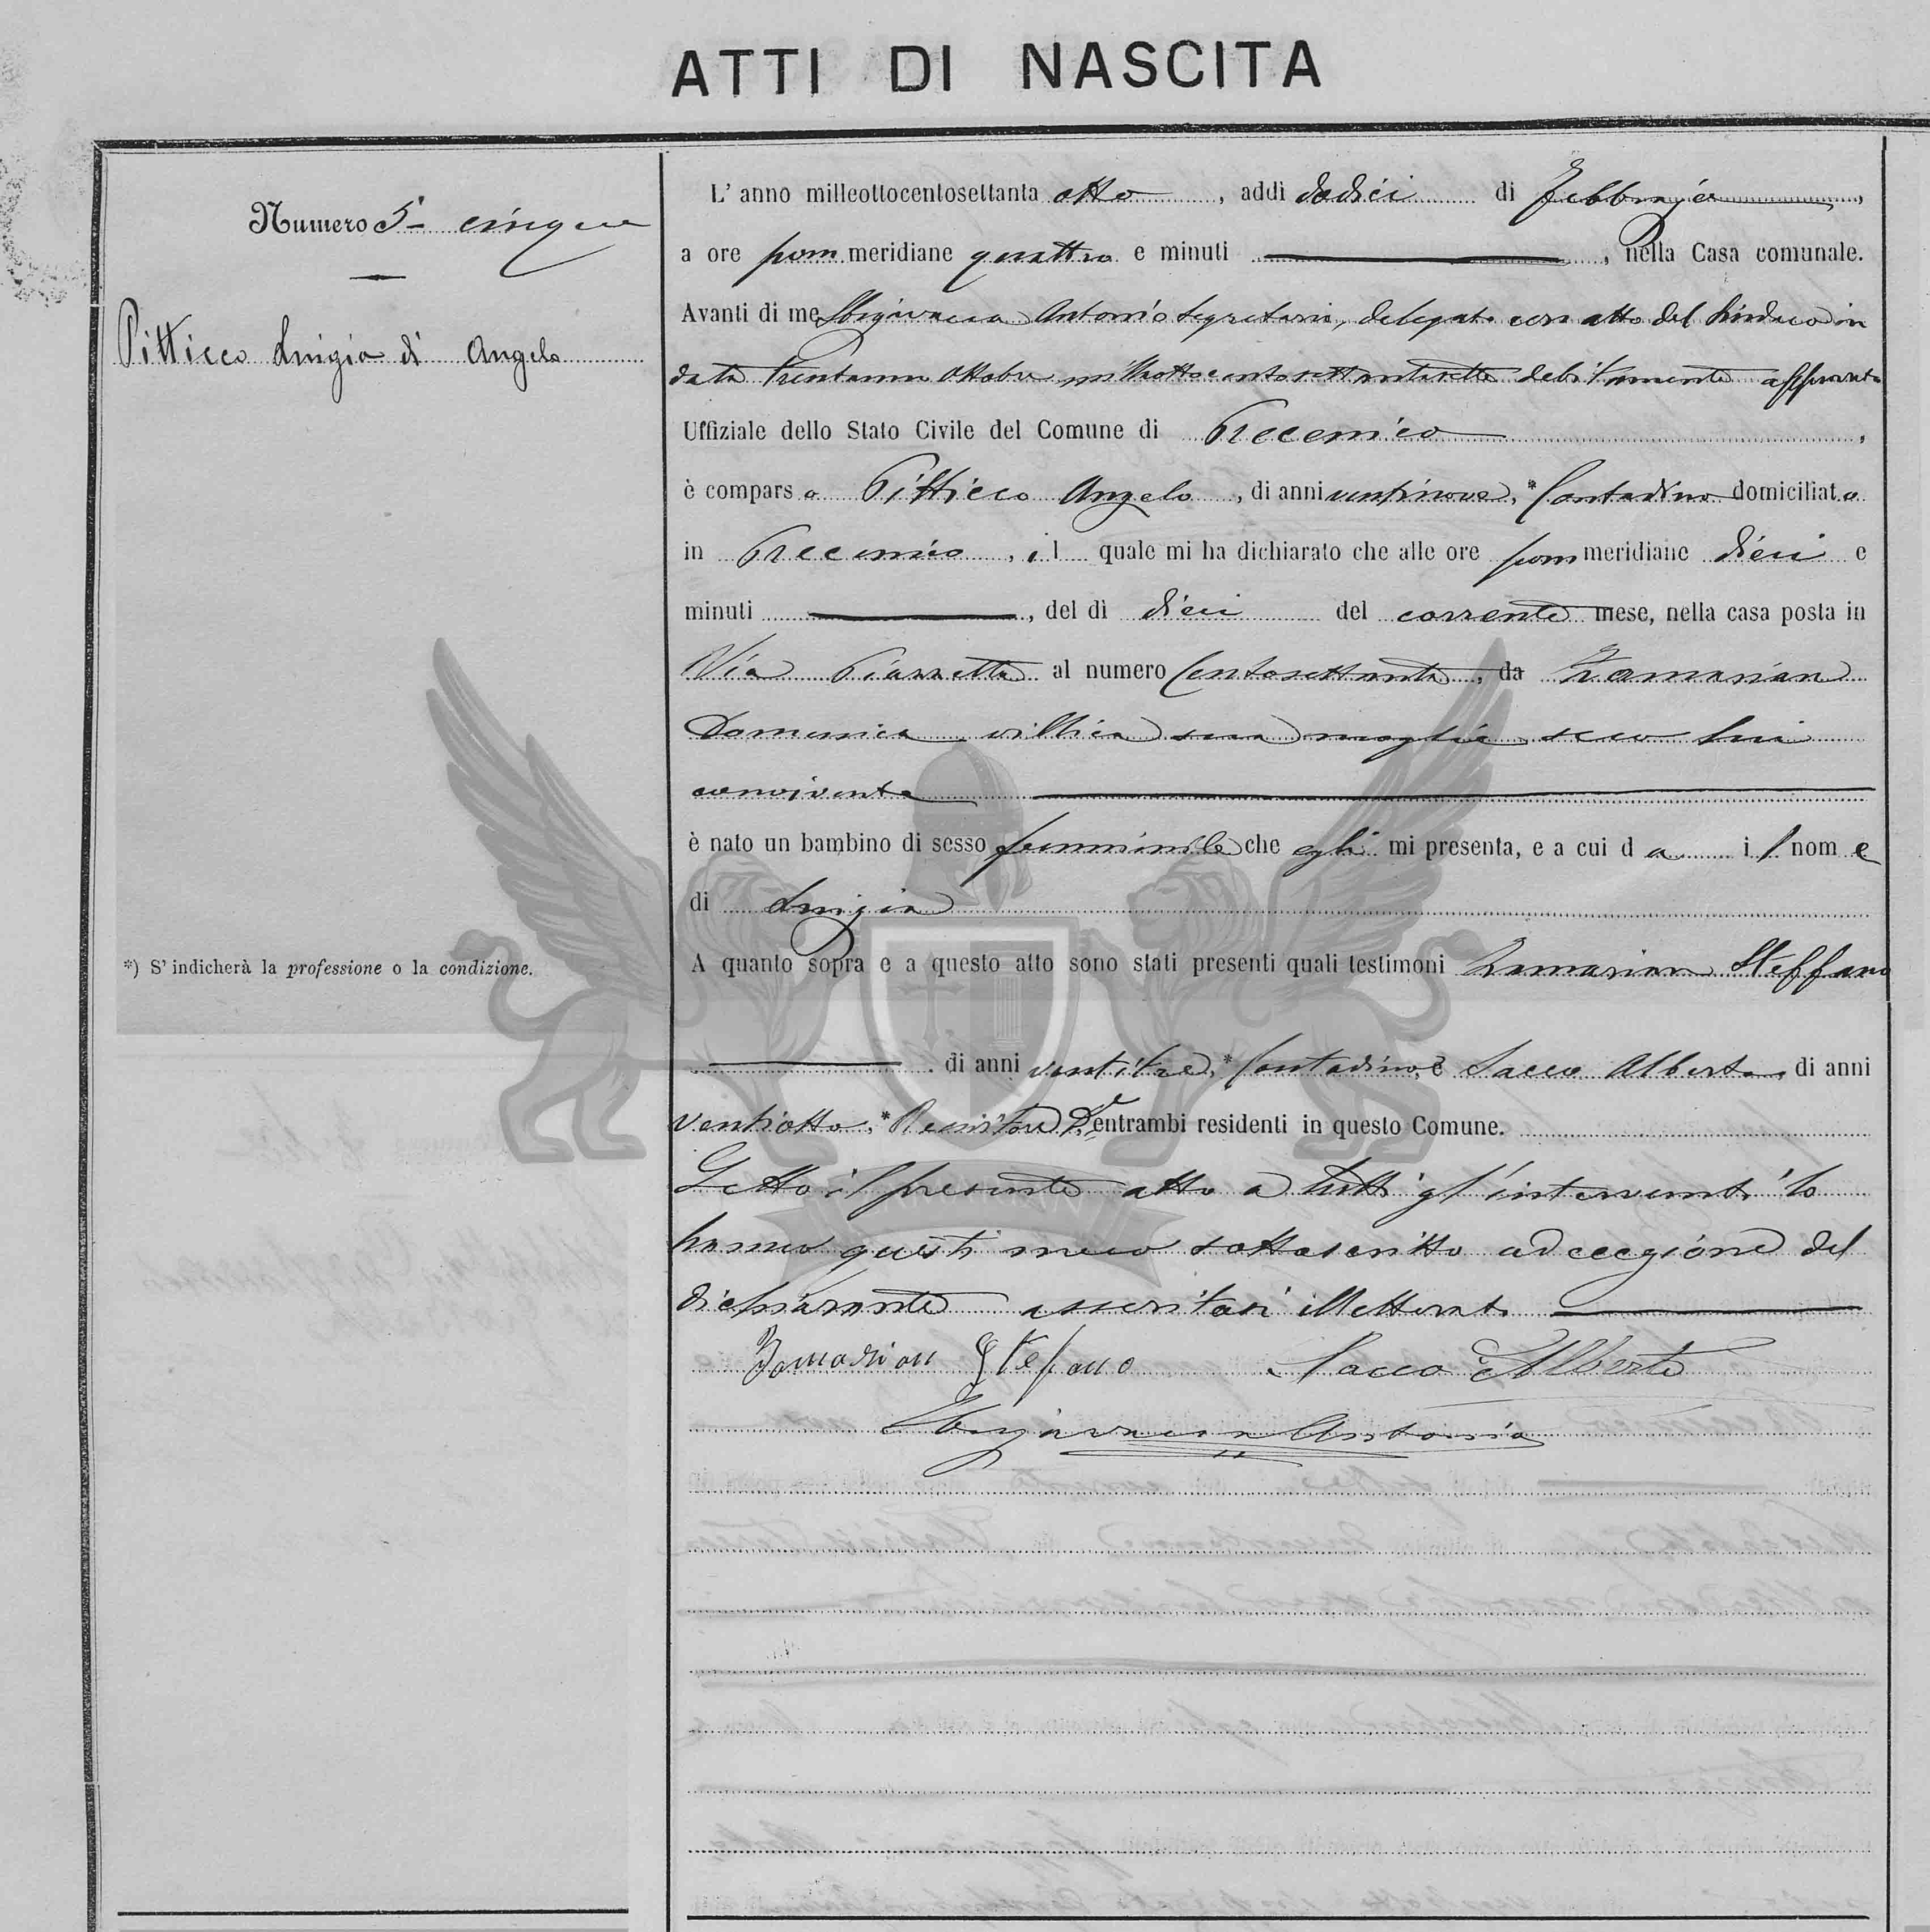 ATTI DI NASCITA
Numero 5 - cinque
Pitticco Luigia di Angelo
*) S' indicherà la professione o la condizione.
L' anno milleottocentosettanta otto, addì dodici di Febbrajo,
a ore pom meridiane quattro e minuti, nella Casa comunale.
Avanti di me Sbigivacca Antonio Segretario, delegato con atto del Sindaco in
data trentauno Ottobre milleottocentosettantasette debitamente approvato
Uffiziale dello Stato Civile del Comune di Precenico,
è comparso Pitticco Angelo, di anni ventinove, * Contadino domiciliato
in Precenico, il quale mi ha dichiarato che alle ore pom meridiane dieci e
minuti, del dì dieci del corrente mese, nella casa posta in
Via Piazzetta al numero Centosettanta, da Zamarian
Domenica villica sua moglie seco lui
convivente
è nato un bambino di sesso femminile che egli mi presenta, e a cui d a il nome
di Luigia
A quanto sopra e a questo atto sono stati presenti quali testimoni Zamarian Steffano
di anni ventitre, * Contadino, e Sacco Alberto, di anni
ventiotto, * entrambi residenti in questo Comune.
Letto il presente atto a tutti gl'intervenuti lo
hanno questi meco sottoscritto ad eccezione del
dichiarante illetterato
Zamarian Stefano Sacco Alberto
Antonio